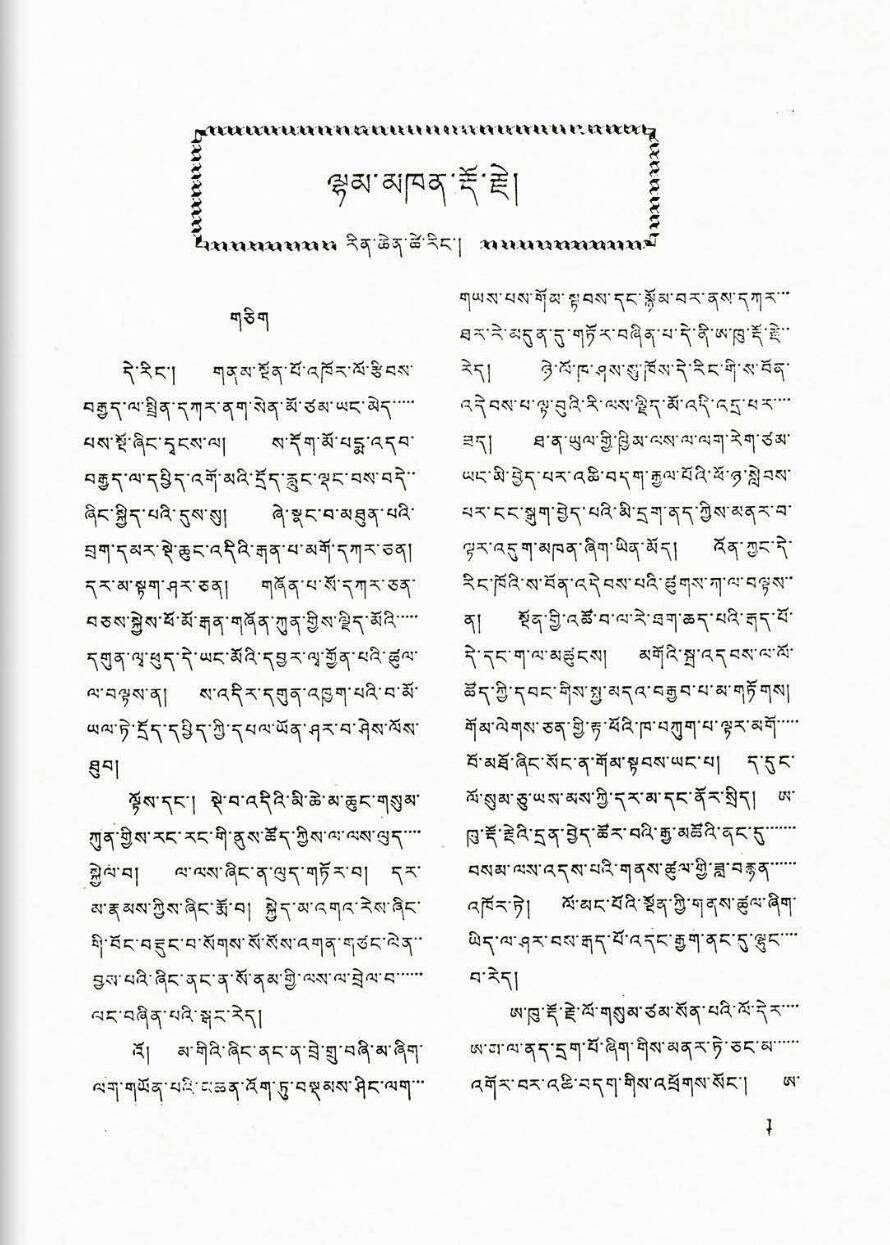 ལྷམ་མཁན་རྡོ་རྗེ།
རིན་ཆེན་ཚེ་རིང་།
གཅིག
དེ་རིང་། གནམ་སྔོན་པོ་འཁོར་ལོ་རྩིབས་
བརྒྱད་ལ་སྤྲིན་དཀར་ནག་སེན་མོ་ཙམ་ཡང་མེད་་་་་
པས་སྔོ་ཞིང་དྭངས་ལ། ས་དོག་མོ་པདྨ་འདབ་
བརྒྱད་ལ་དཔྱིད་འགོ་མའི་དྲོད་རླུང་ལྡང་བས་བདེ་་
ཞིང་སྐྱིད་པའི་དུས་སུ། ཞེ་སྣང་བ་མཐུན་པའི་
བྲག་དམར་སྡེ་ཆུང་འདིའི་རྒན་པ་མགོ་དཀར་ཅན།
དར་མ་སྟག་ཤར་ཅན། གཞོན་པ་སོ་དཀར་ཅན་
བཅས་སྐྱེས་ཕོ་མོ་རྒན་གཞོན་ཀུན་གྱིས་ལྗིད་མོའི་་་་་
དགུན་ལྭ་ཕུད་དེ་ཡང་མོའི་དབྱར་ལྭ་གྱོན་པའི་ཚུལ་
ལ་བལྟས་ན། ས་འདིར་དགུན་འཁྱག་པའི་བ་མོ་
ཡལ་ཏེ་དྲོད་དཔྱིད་ཀྱི་དཔལ་ཡོན་ཤར་བ་ཤེས་ལོས་
ཐུབ།
ལྟོས་དང་། སྡེ་བ་འདིའི་མི་ཆེ་མ་ཆུང་གསུམ་
ཀུན་གྱིས་རང་རང་གི་ནུས་ཚོད་ཀྱིས་ལ་ལས་ལུད་་་་
སྐྱེལ་བ། ལ་ལས་ཞིང་ན་ལུད་གཏོར་བ། དར་
མ་རྣམས་ཀྱིས་ཞིང་རྨོ་བ། སྐྱེད་མ་འགའ་རེས་ཞིང་
གི་བོང་བརྡུང་བ་སོགས་སོ་སོས་འགན་གཙང་ལེན་་
བྱས་པའི་ཞིང་ནང་ན་སོ་ནམ་གྱི་ལས་ལ་བྲེལ་བ་་་་་་
ལང་བཞིན་པའི་སྒང་རེད།
འོ། མ་གིའི་ཞིང་ནང་ན་བྲེ་གྲུ་བཞི་མ་ཞིག་
ལག་གཡོན་པའི་མཆན་འོག་ཏུ་བསྡམས་ཤིང་ལག་་་
གཡས་པས་གོམ་སྟབས་དང་སྙོམ་བར་ནས་དཀར་་་་
ཐར་རེ་མདུན་དུ་གཏོར་བཞིན་པ་དེ་ནི་ཨ་ཁུ་རྡོ་རྗེ་་
རེད། ཉེ་ལོ་ཁ་ཤས་སུ་ཁོས་དེ་རིང་གི་ས་བོན་
འདེབས་པ་ལྟ་བུའི་རི་ལས་ལྗིད་མོ་འདི་འདྲ་པར་་་་
ཟད། ཐ་ན་ཡུལ་གྱི་ཁྱིམ་ལས་ལ་ལག་རེག་ཙམ་
ཡང་མི་བྱེད་པར་འཆི་བདག་རྒྱལ་པོའི་ཕོ་ཉ་སླེབས་
པར་ངང་སྒུག་བྱེད་པའི་མི་དྲག་ནད་ཀྱིས་མནར་བ་
ལྟར་འདུག་མཁན་ཞིག་ཡིན་མོད། འོན་ཀྱང་དེ་
རིང་ཁོའི་ས་བོན་འདེབས་པའི་ཚུགས་ཀ་ལ་བལྟས་་
ན། སྔོན་གྱི་འཚོ་བ་ལ་རེ་ཐག་ཆད་པའི་རྒད་པོ་
དེ་དང་ག་ལ་མཚུངས། མགོའི་སྐྲ་འདབས་ལ་ལོ་
ཚོད་ཀྱི་དབང་གིས་སྤུ་མདའ་བརྒྱབ་པ་མ་གཏོགས།
གོམ་ལེགས་ཅན་གྱི་རྟ་ཕོའི་ཁ་བཀུག་པ་ལྟར་མགོ་་་་་
བོ་མཐོ་ཞིང་སོང་ན་གོམ་སྟབས་ཡང་པ། ད་དུང་
ལོ་སུམ་ཅུ་ཡས་མས་ཀྱི་དར་མ་དང་ནོར་སྲིད། ཨ་
ཁུ་རྡོ་རྗེའི་དྲན་བྱེད་ཚོར་བའི་རྒྱ་མཚོའི་ནང་དུ་་་་་་་
བསམ་ལས་འདས་པའི་གནས་ཚུལ་གྱི་ཟླ་བརྙན་་་་་་
འཁོར་ཏེ། ལོ་མང་པོའི་སྔོན་གྱི་གནས་ཚུལ་ཞིག་
ཡིད་ལ་ཤར་བས་རྒད་པོ་འདང་རྒྱག་ནང་དུ་ལྷུང་་་་
བ་རེད།
ཨ་ཁུ་རྡོ་རྗེ་ལོ་གསུམ་ཙམ་སོན་པའི་ལོ་དེར་་་་
ཨ་ཕ་ལ་ནད་དྲག་པོ་ཞིག་གིས་མནར་ཏེ་ཅང་མ་་་་་་
འགོར་བར་འཆི་བདག་གིས་འཕྲོགས་སོང་། ཨ་
༡